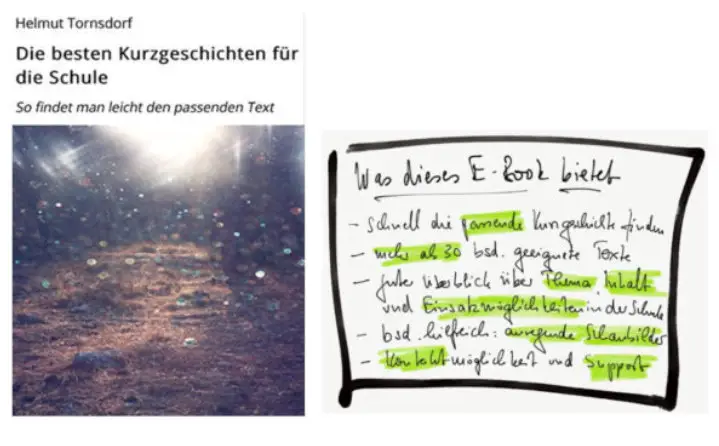 Helmut Tornsdorf
Die besten Kurzgeschichten für
die Schule
So findet man leicht den passenden Text
Was dieses E-Book bietet
- Schnell die passende Kurzgeschichte finden
- mehr als 30 bsd. geeignete Texte
- guter Überblick über Thema Inhalt
und Einsatzmöglichkeiten in der Schule
- bsd. hilfreich: anregende Schaubilder
- Kontaktmöglichkeit und Support